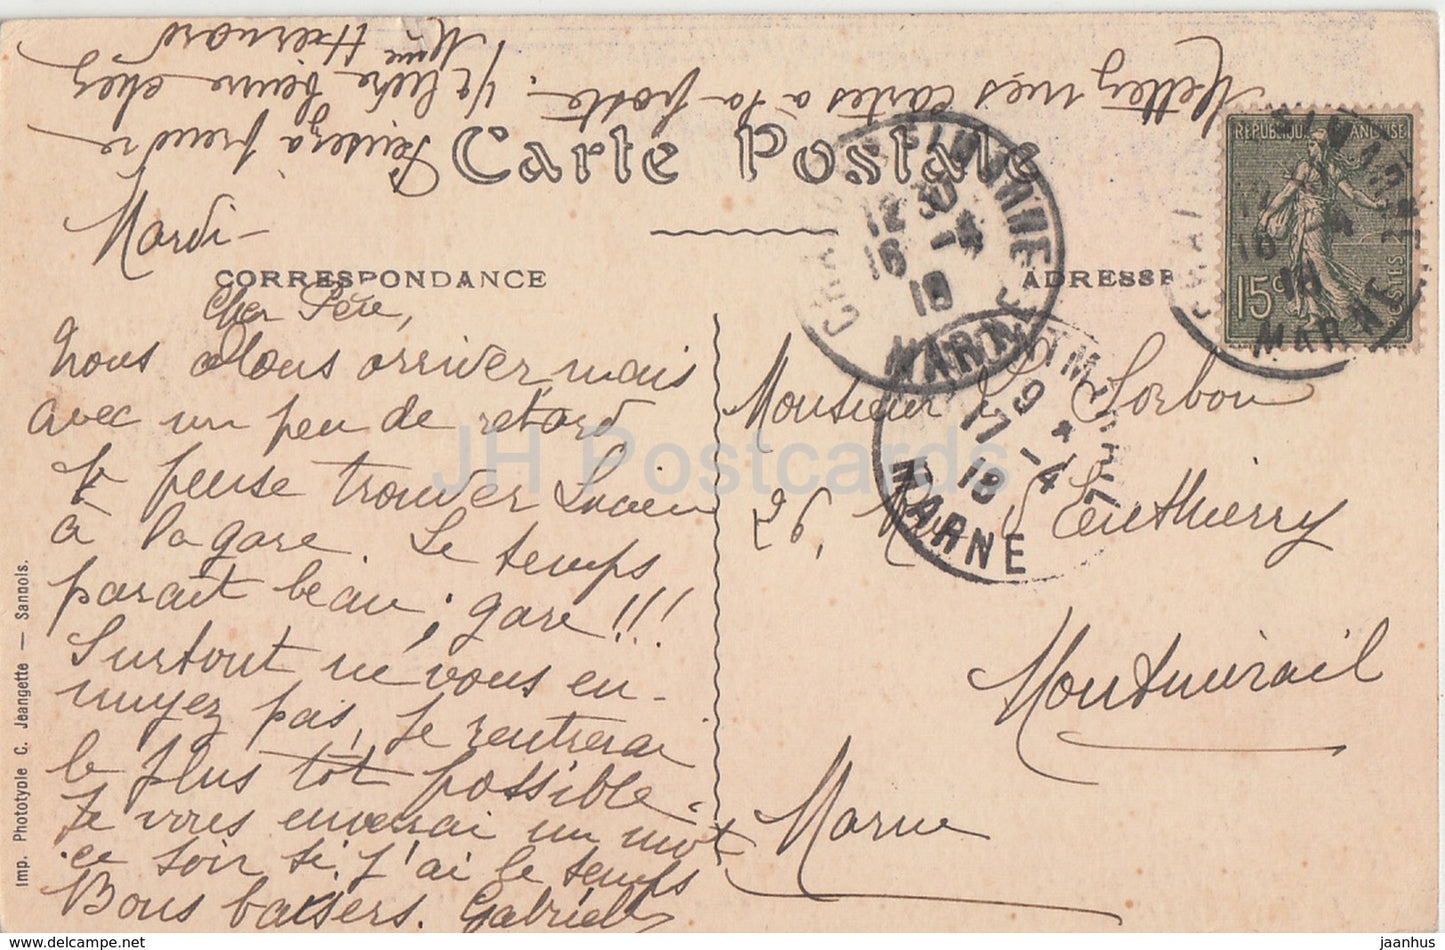 Mettez mes cartes à la poste.
Pensez à prendre
1/2 livre beurre chez
Mme
Carte Postale
Mardi -
CORRESPONDANCE
ADRESSE
Cher Père,
Nous allons arriver mais
avec un peu de retard
Je pense trouver Lucien
à la gare. Le temps
parait beau, gare!!!
Surtout ne vous en-
nuyez pas, Je rentrerai
le plus tôt possible.
Je vous enverrai un mot
ce soir si j'ai le temps
Bons baisers. Gabrielle
Monsieur Sorbon
26, Leuthierry
Montmirail
Marne
REPUBLIQUE FRANÇAISE
15c
POSTES
12 30
16 - 4
18
MARNE
MONTMIRAIL
9
17 - 4
18
MARNE
16 - 4
18
MARNE
Imp. Phototypie C. Jeangette — Sannois.
JH Postcards
jaanhus — delcampe.net